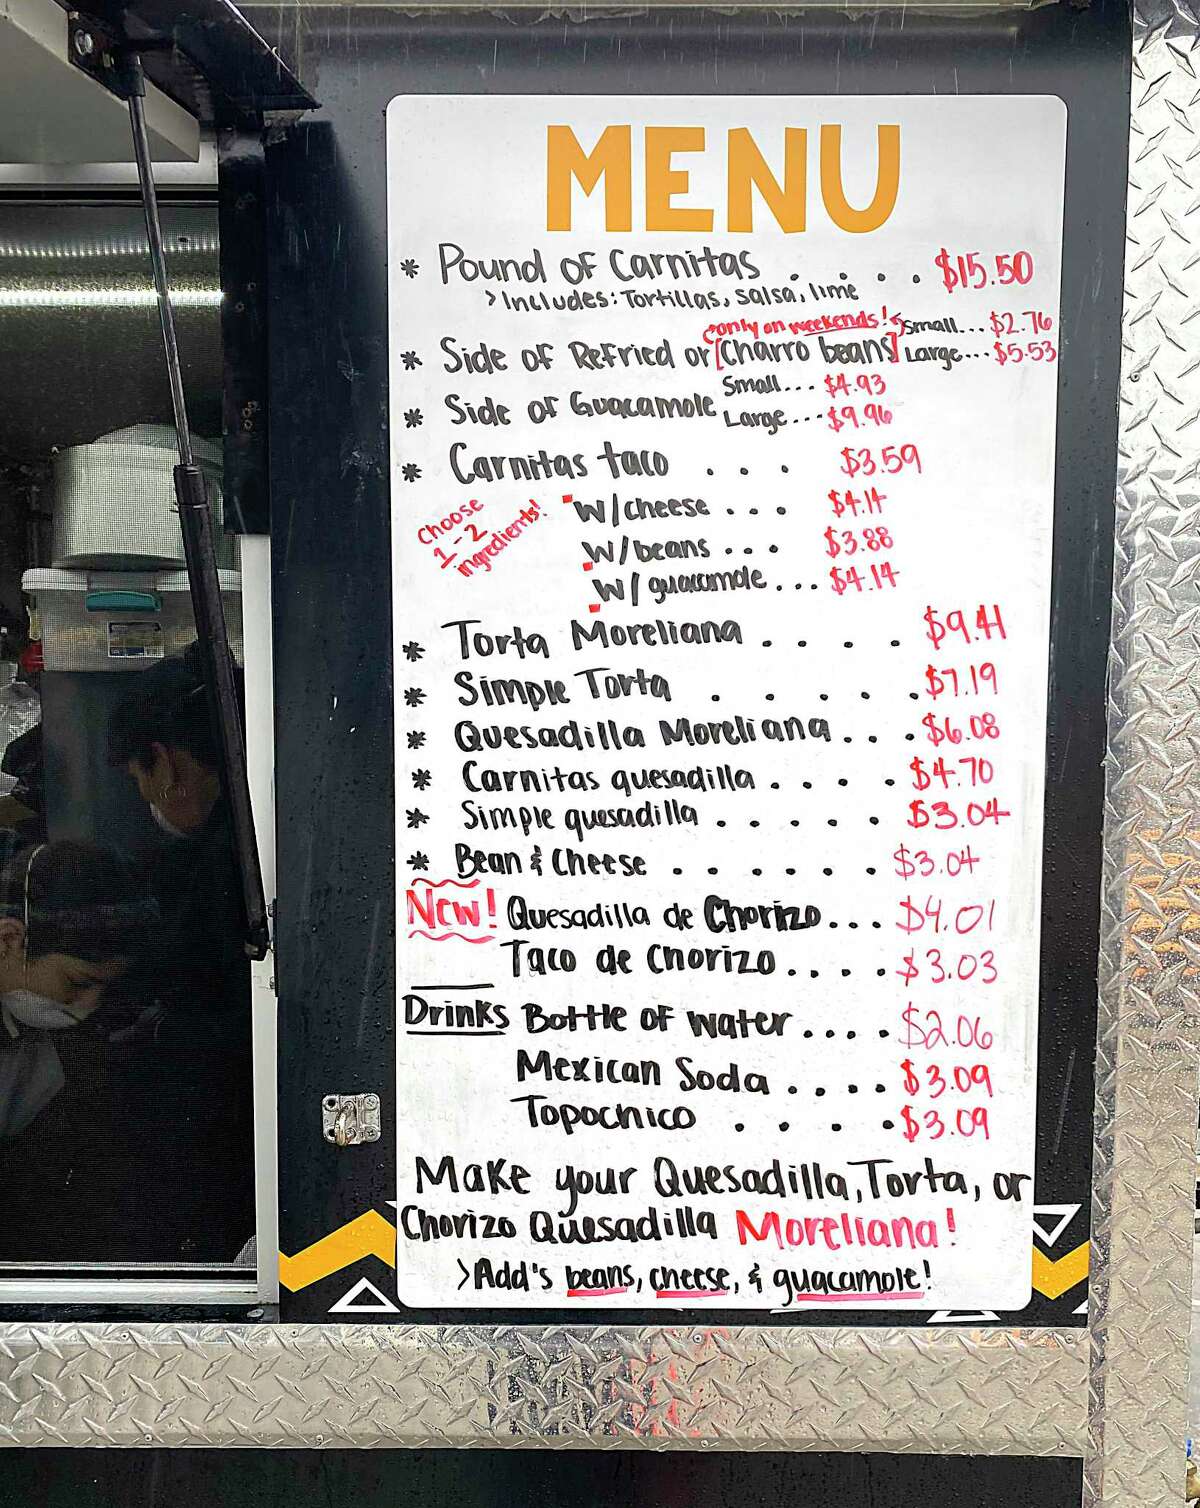 MENU
* Pound of Carnitas . . . . . $15.50
> Includes: Tortillas, salsa, lime
only on weekends!
* Side of Refried or [Charro beans] Small... $2.76
Large... $5.53
* Side of Guacamole Small... $4.93
Large... $9.96
* Carnitas taco . . . $3.59
Choose 1-2 ingredients!
W/cheese . . . $4.14
W/beans . . . $3.88
W/guacamole . . . $4.14
* Torta Moreliana . . . . $9.41
* Simple Torta . . . . . $7.19
* Quesadilla Moreliana . . . $6.08
* Carnitas quesadilla . . . . $4.70
* Simple quesadilla . . . . . $3.04
* Bean & Cheese . . . . . . $3.04
New! Quesadilla de Chorizo . . . $4.01
Taco de Chorizo . . . . $3.03
Drinks Bottle of water . . . . $2.06
Mexican Soda . . . . $3.09
Topochico . . . . $3.09
Make your Quesadilla, Torta, or
Chorizo Quesadilla Moreliana!
> Add's beans, cheese, & guacamole!